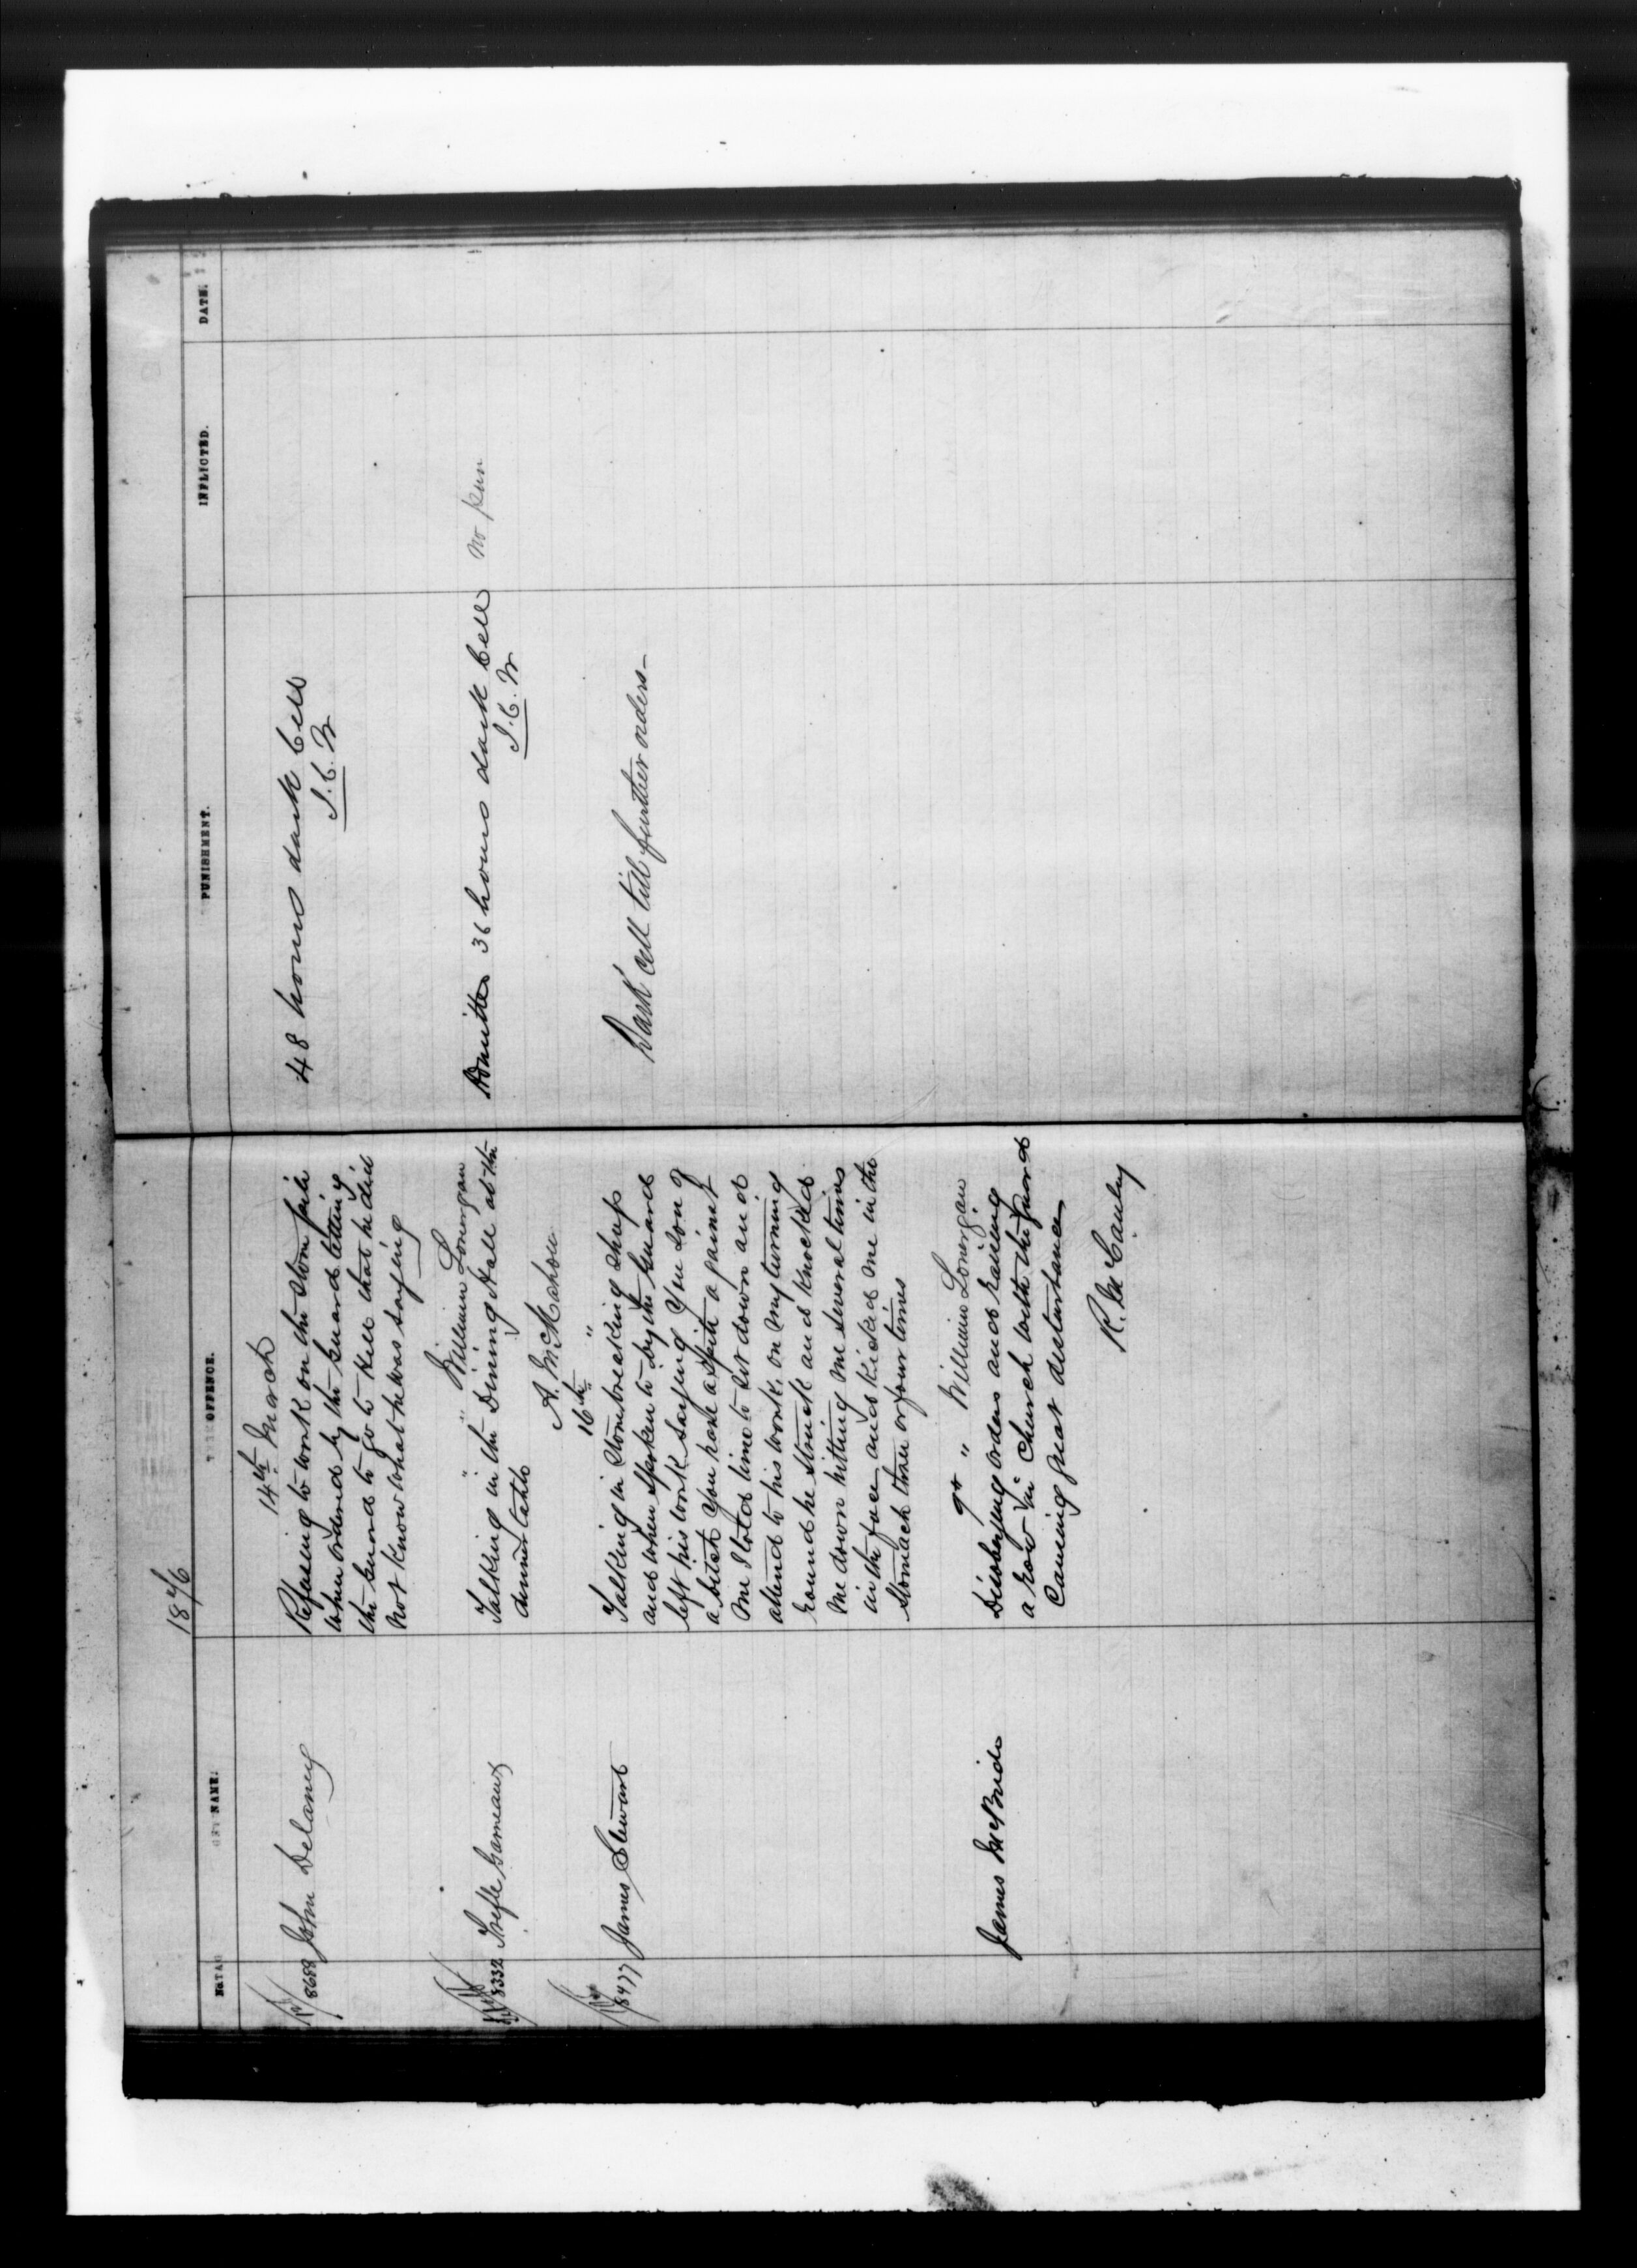 1876
No.
NAME.
OFFENCE.
PUNISHMENT.
INFLICTED.
DATE.
14th March
8689 John Delaney
Refusing to work on the stone pile
when ordered by the Guard telling
the Guard to go to Hell that he did
not know what he was saying
William Lonergan
48 hours dark Cell
J. C. M
" "
8332 Trefle Gameaux
Talking in the Dining Hall at the
dinner table
A. McMahon
Admitted 36 hours dark Cell
J. C. M
no
16th "
8477 James Stewart
Talking in Stonebreaking Shop
and when spoken to by the Guard
left his work saying You Son of
a bitch You have a Spite against
me I told time to sit down and
attend to his work. on my turning
round he struck and knocked
me down hitting me several times
in the face and kicked me in the
stomach three or four times
William Lonergan
Dark cell till further orders—
"
James McBride
Disobeying orders and raising
a row in Church with the Guard
Causing great disturbance
R. McCauley